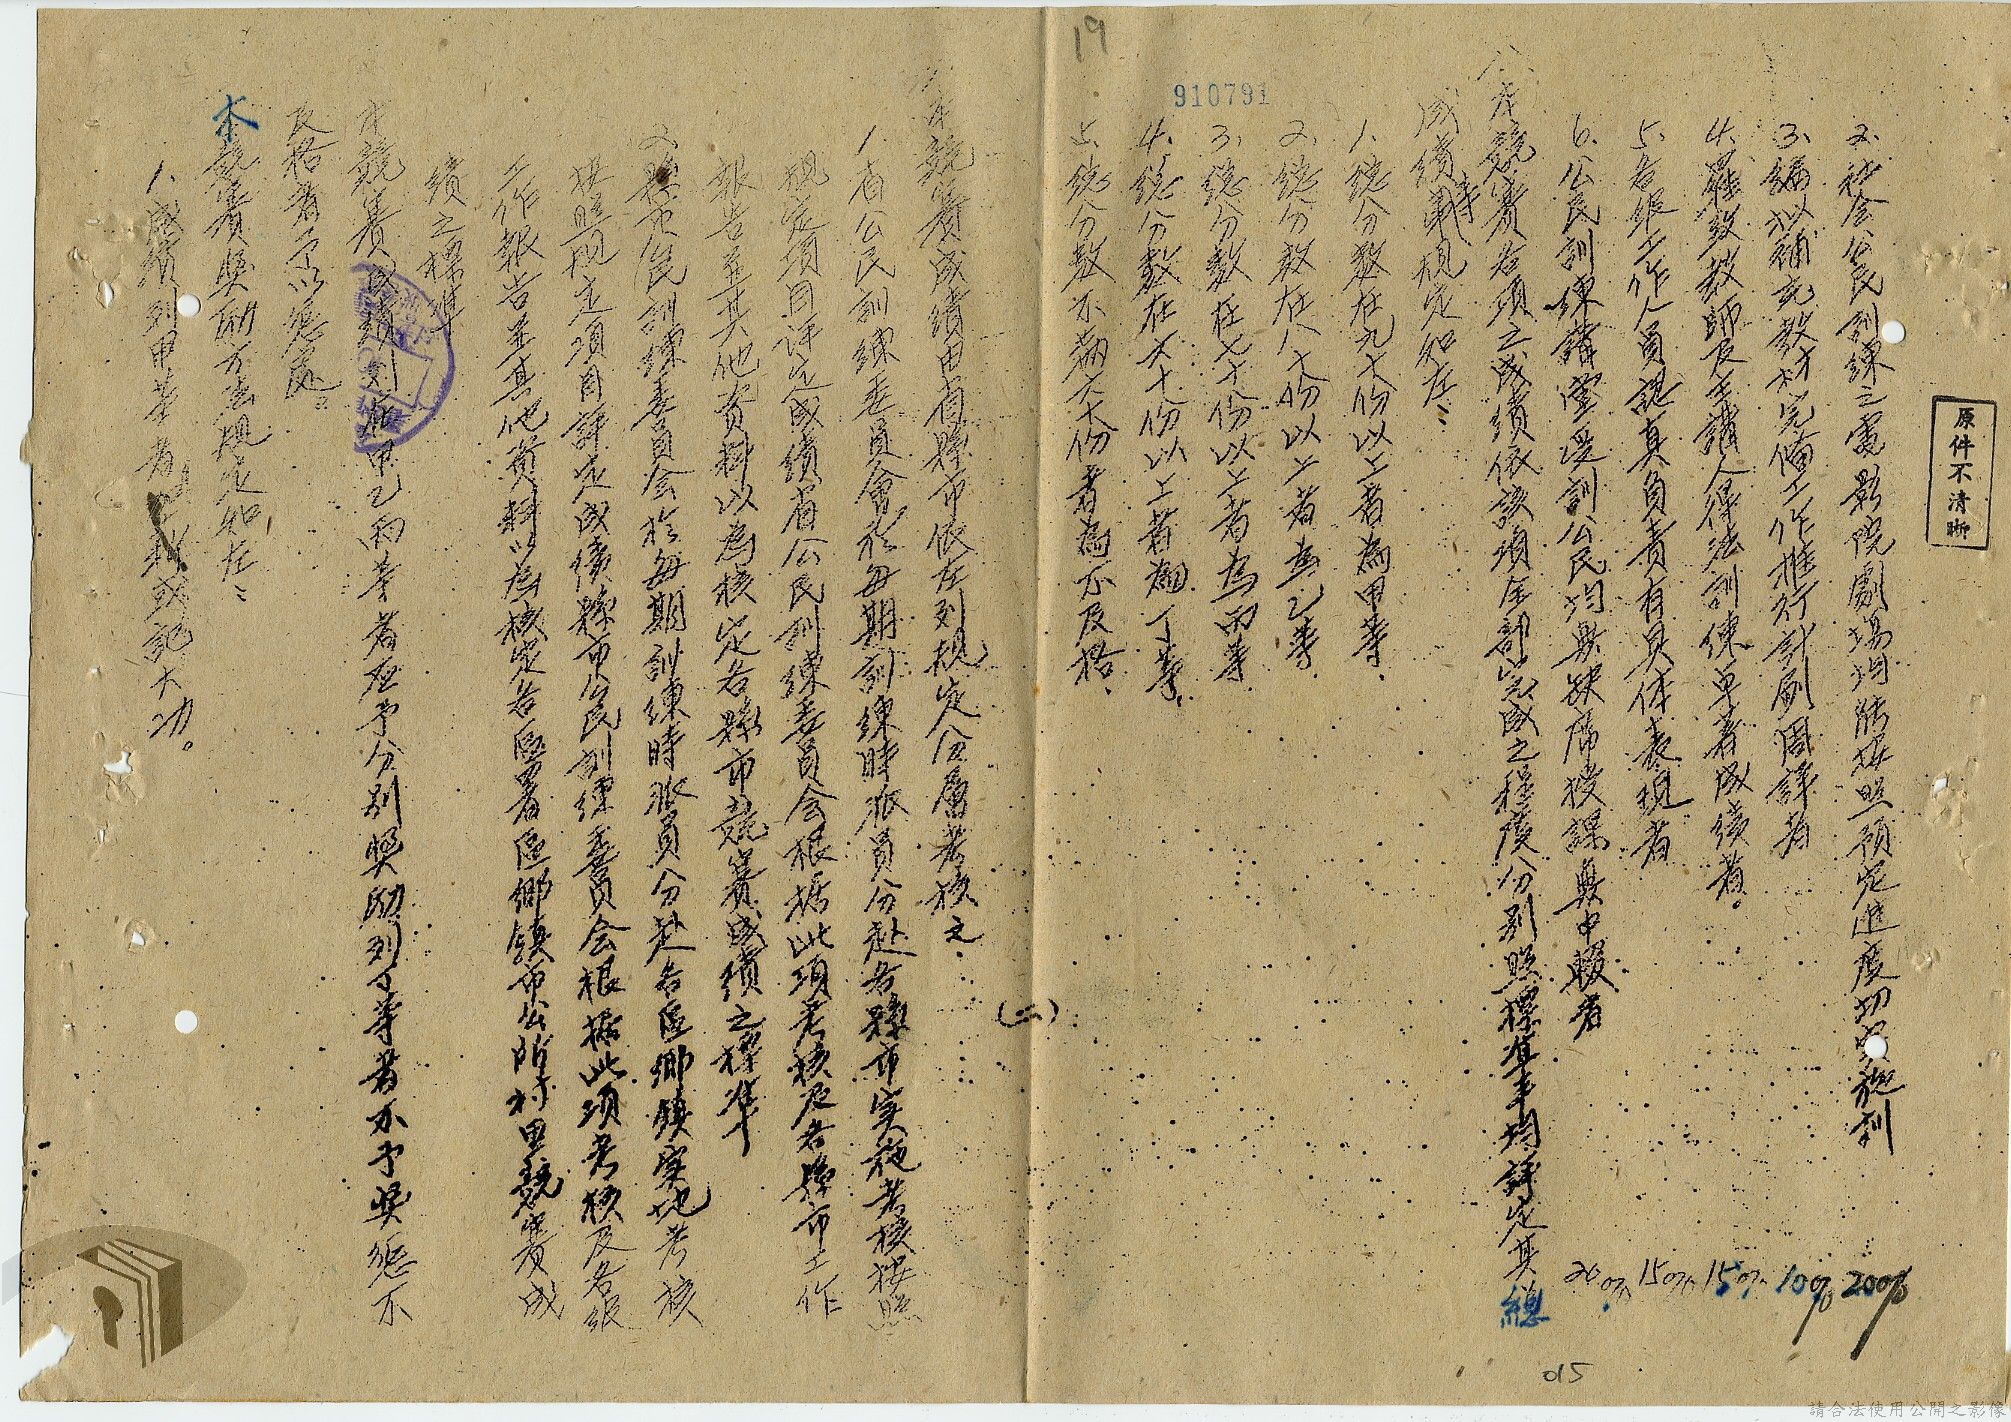 原件不清晰
2、社会公民訓練之電影院劇場均能按照預定進度切实施訓 20%
3、編拟補充教材完備工作推行計劃周詳者 10%
4、羅致教師及主講人得法訓練卓著成績者。 15%
5、各級工作人員認真負責有具体表現者 15%
6、公民訓練講堂受訓公民均無缺席授課無中輟者 20%
八、本競賽各項之成績依該項全部完成之程度分別照標準平均評定其總
成績等第規定如左：
1、總分數在九十份以上者為甲等.
2、總分数在八十份以上者為乙等.
3、總分數在七十份以上者為丙等
4、總分數在六十份以上者為丁等.
5、總分數不滿六十份者為不及格.
19
910791
(二)
本競賽成績由省縣市依左列規定分層考核之.
1、省公民訓練委員會於每期訓練時派員分赴各縣市实施考核按照
規定項目評定成績省公民訓練委員会根据此項考核及各縣市工作
報告並其他資料以為核定各縣市競賽成績之標準
2、縣市公民訓練委員会於每期訓練時派員分赴各區鄉鎮实地考核
按照規定項目評定成績縣市公民訓練委員会根据此項考核及各級
工作報告並其他資料以為核定各區署區鄉鎮市公所村里競賽成
績之標準
本競賽成績列在甲乙丙等者应予分别奬勵列丁等者不予奬懲不
及格者予以懲處。
本競賽奬勵方法規定如左：
1、成績列甲等者或記大功。
015
請合法使用公開之影像